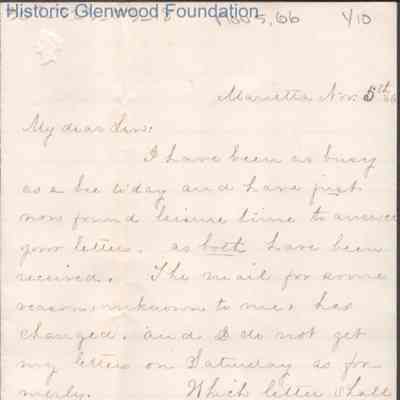 Historic Glenwood Foundation
Nov 5, 66 Y10
Marietta Nov. 5th 66
My dear Sir:
I have been as busy
as a bee to day and have just
now found leisure time to answer
your letters. as both have been
received. The mail for some
reason, unknown to me, has
changed. and I do not get
my letters on Saturday as for
merly. Which letter shall